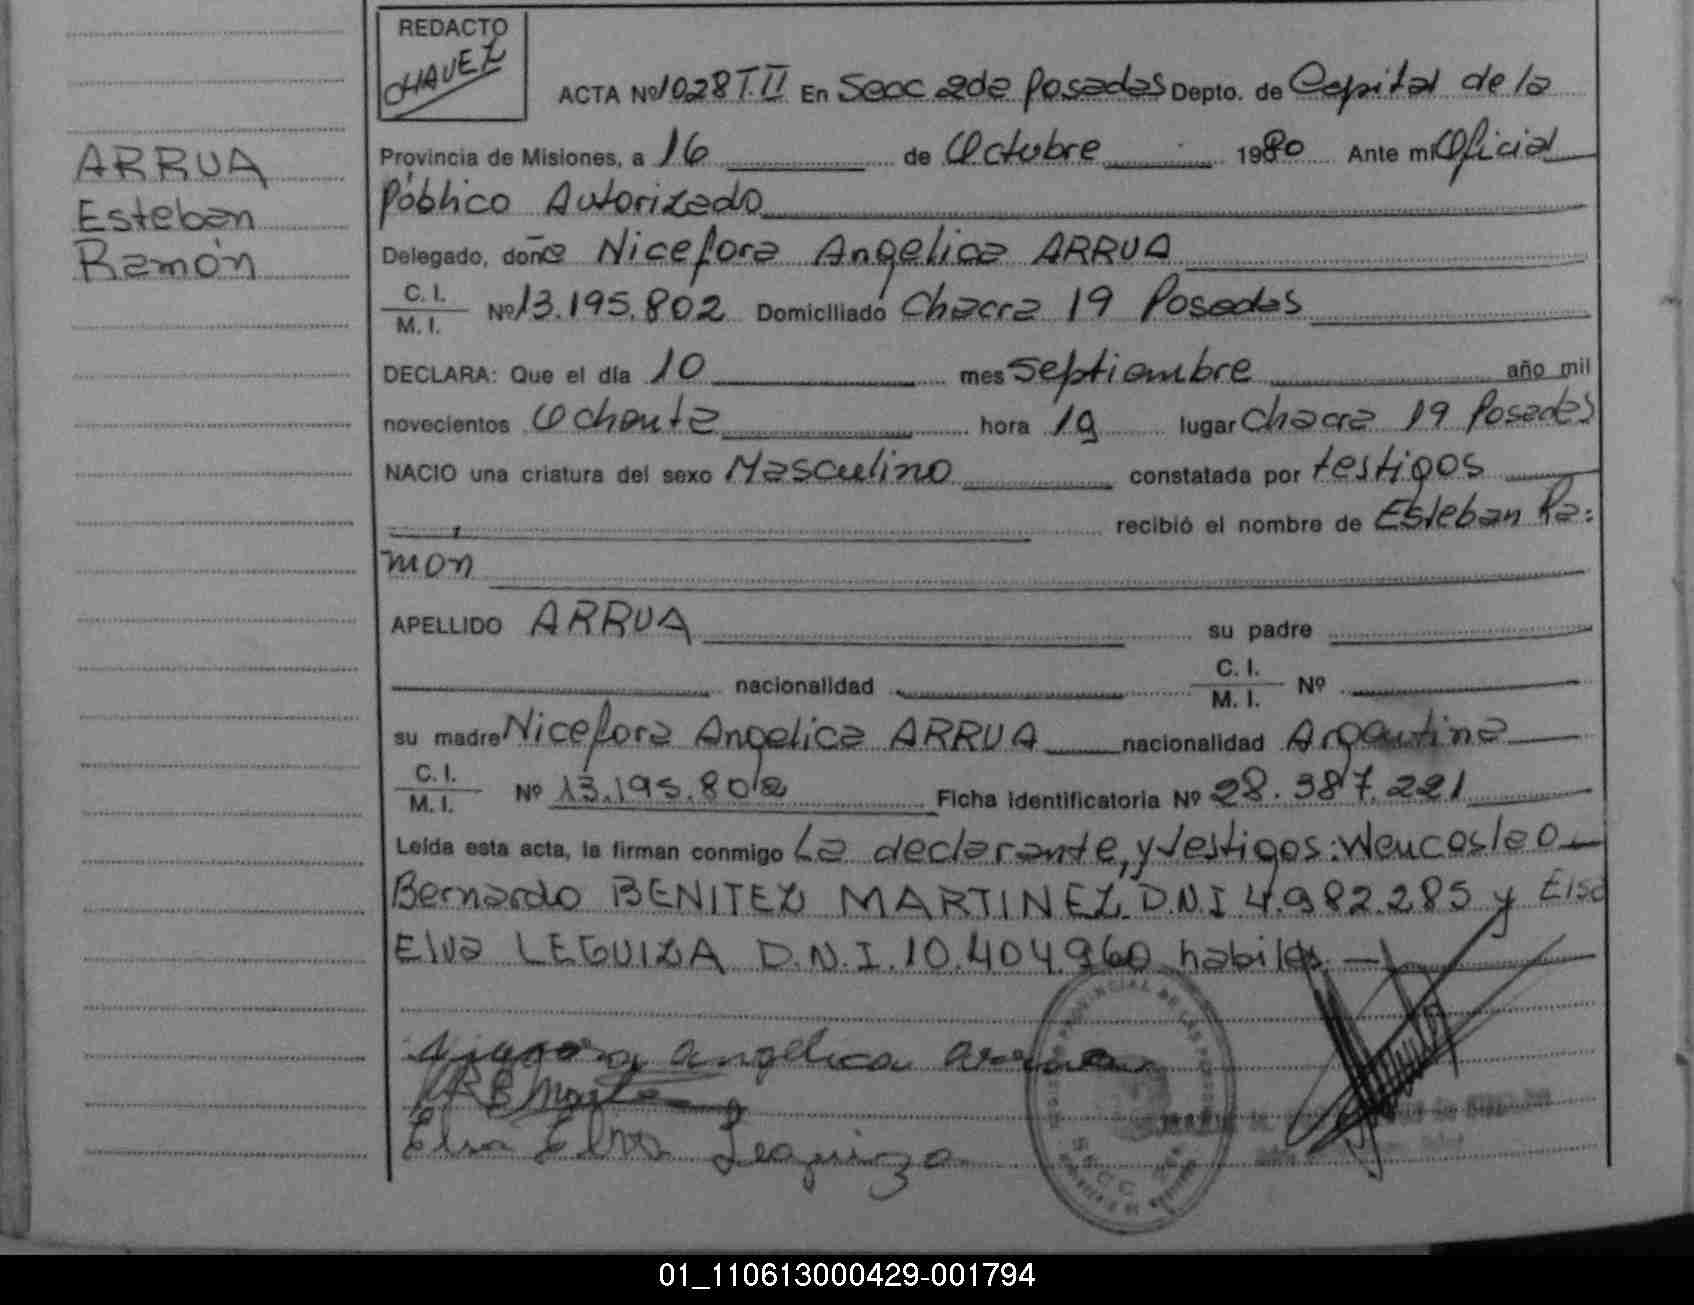 REDACTO
CHAVEZ
ACTA Nº 1028 T. II En Secc 2da Posadas Depto. de Capital de la
ARRUA
Esteban
Ramón
Provincia de Misiones, a 16 de Octubre 1980 Ante mi Oficial
Público Autorizado
Delegado, doña Nicefora Angelica ARRUA
C. I.
M. I. Nº 13.195.802 Domiciliado Chacra 19 Posadas
DECLARA: Que el día 10 mes Septiembre año mil
novecientos Ochenta hora 19 lugar Chacra 19 Posadas
NACIO una criatura del sexo Masculino constatada por testigos
recibió el nombre de Esteban Ra=
mon
APELLIDO ARRUA su padre
nacionalidad C. I.
M. I. Nº
su madre Nicefora Angelica ARRUA nacionalidad Argentina
C. I.
M. I. Nº 13.195.802 Ficha Identificatoria Nº 28.387.221
Leída esta acta, la firman conmigo La declarante, y testigos: Wencesleo
Bernardo BENITEZ MARTINEZ D.N.I 4.982.285 y Elsa
Elva LEGUIZA D.N.I. 10.404.960 habiles.
angelica arrua
Elsa Elva Leguiza
PROVINCIAL DE LAS
SECC.
01_110613000429-001794